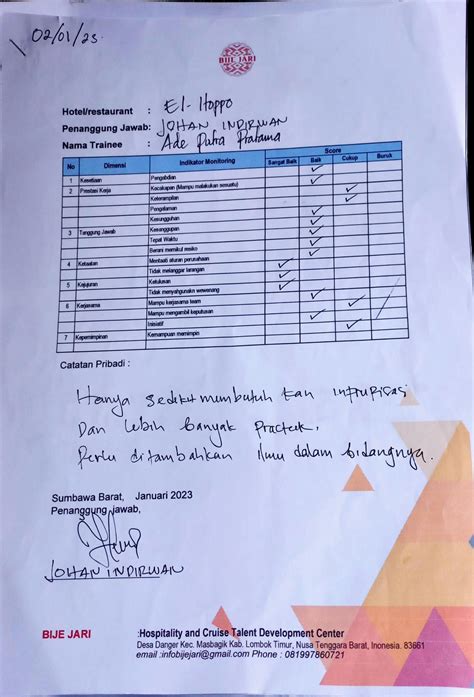 02/01/23
BIJE JARI
Hotel/restaurant : El-Hoppo
Penanggung Jawab: JOHAN INDIRWAN
Nama Trainee : Ade Putra Pratama
No Dimensi Indikator Monitoring Score
Sangat Baik Baik Cukup Buruk
1 Kesetiaan Pengabdian ✓
2 Prestasi Kerja Kecakapan (Mampu malakukan sesuatu) ✓
Keterampilan ✓
Pengalaman ✓
Kesungguhan ✓
3 Tanggung Jawab Kesanggupan ✓
Tepat Waktu ✓
Berani memikul resiko ✓
4 Ketaatan Mentaati aturan perusahaan ✓
Tidak melanggar larangan ✓
5 Kejujuran Ketulusan ✓
Tidak menyahgunakn wewenang ✓
6 Kerjasama Mampu kerjasama team ✓
Mampu mengambil keputusan ✓
Inisiatif ✓
7 Kepemimpinan Kemampuan memimpin
Catatan Pribadi :
Hanya sedikit membutuh kan
Dan lebih banyak Practek,
Perlu ditambahkan ilmu dalam bidangnya.
Sumbawa Barat, Januari 2023
Penanggung jawab,
JOHAN INDIRWAN
BIJE JARI :Hospitality and Cruise Talent Development Center
Desa Danger Kec. Masbagik Kab. Lombok Timur, Nusa Tenggara Barat, Inonesia. 83661
email :infobijejari@gmail.com Phone : 081997860721